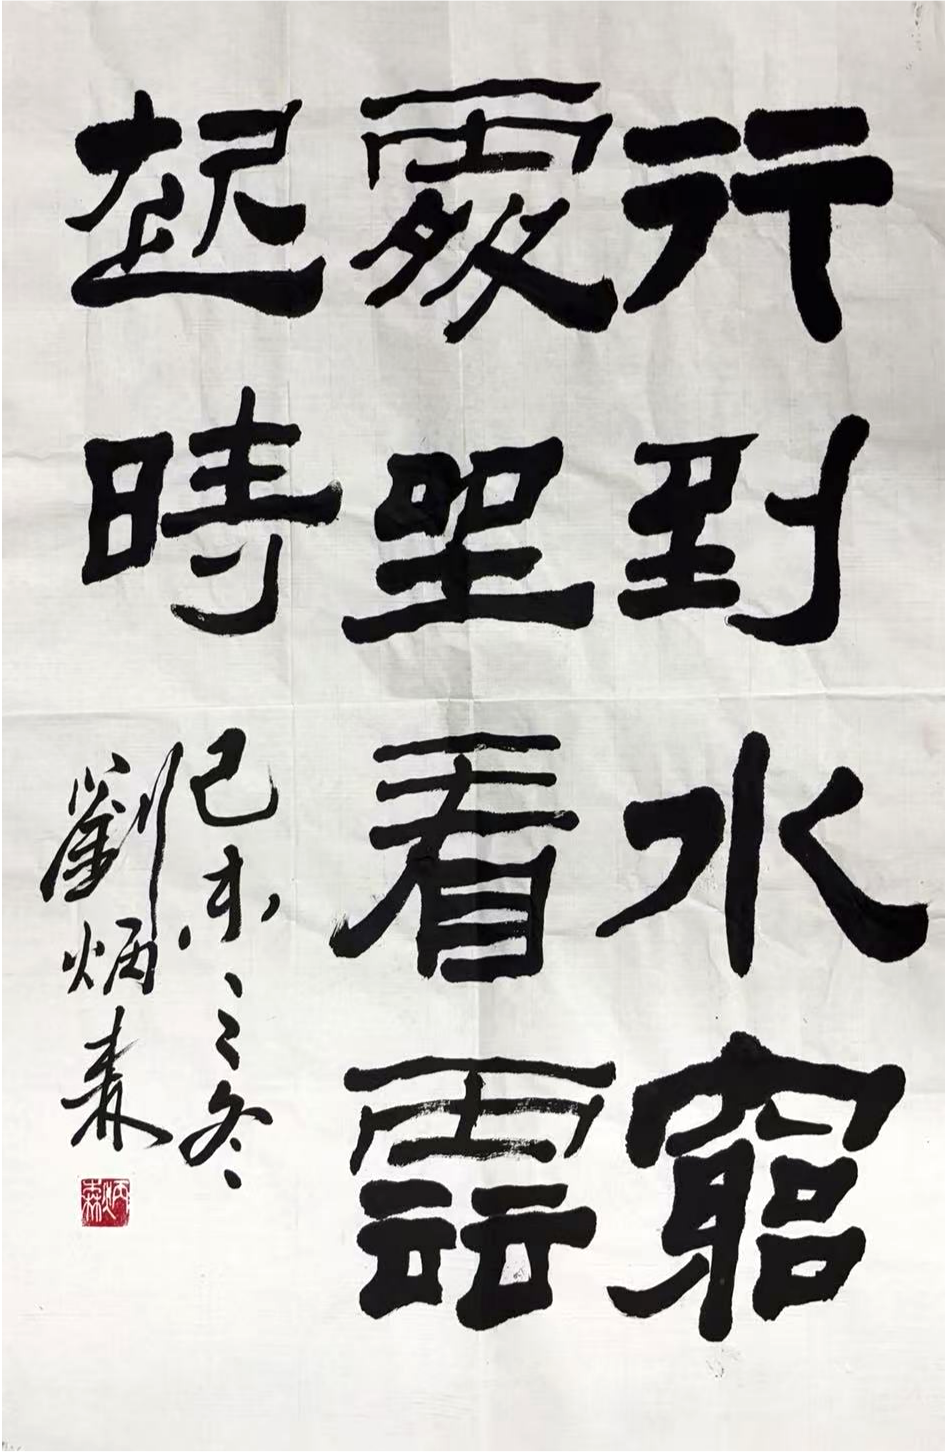 行到水窮
處坐看雲
起時
己未之冬
劉炳森
炳森